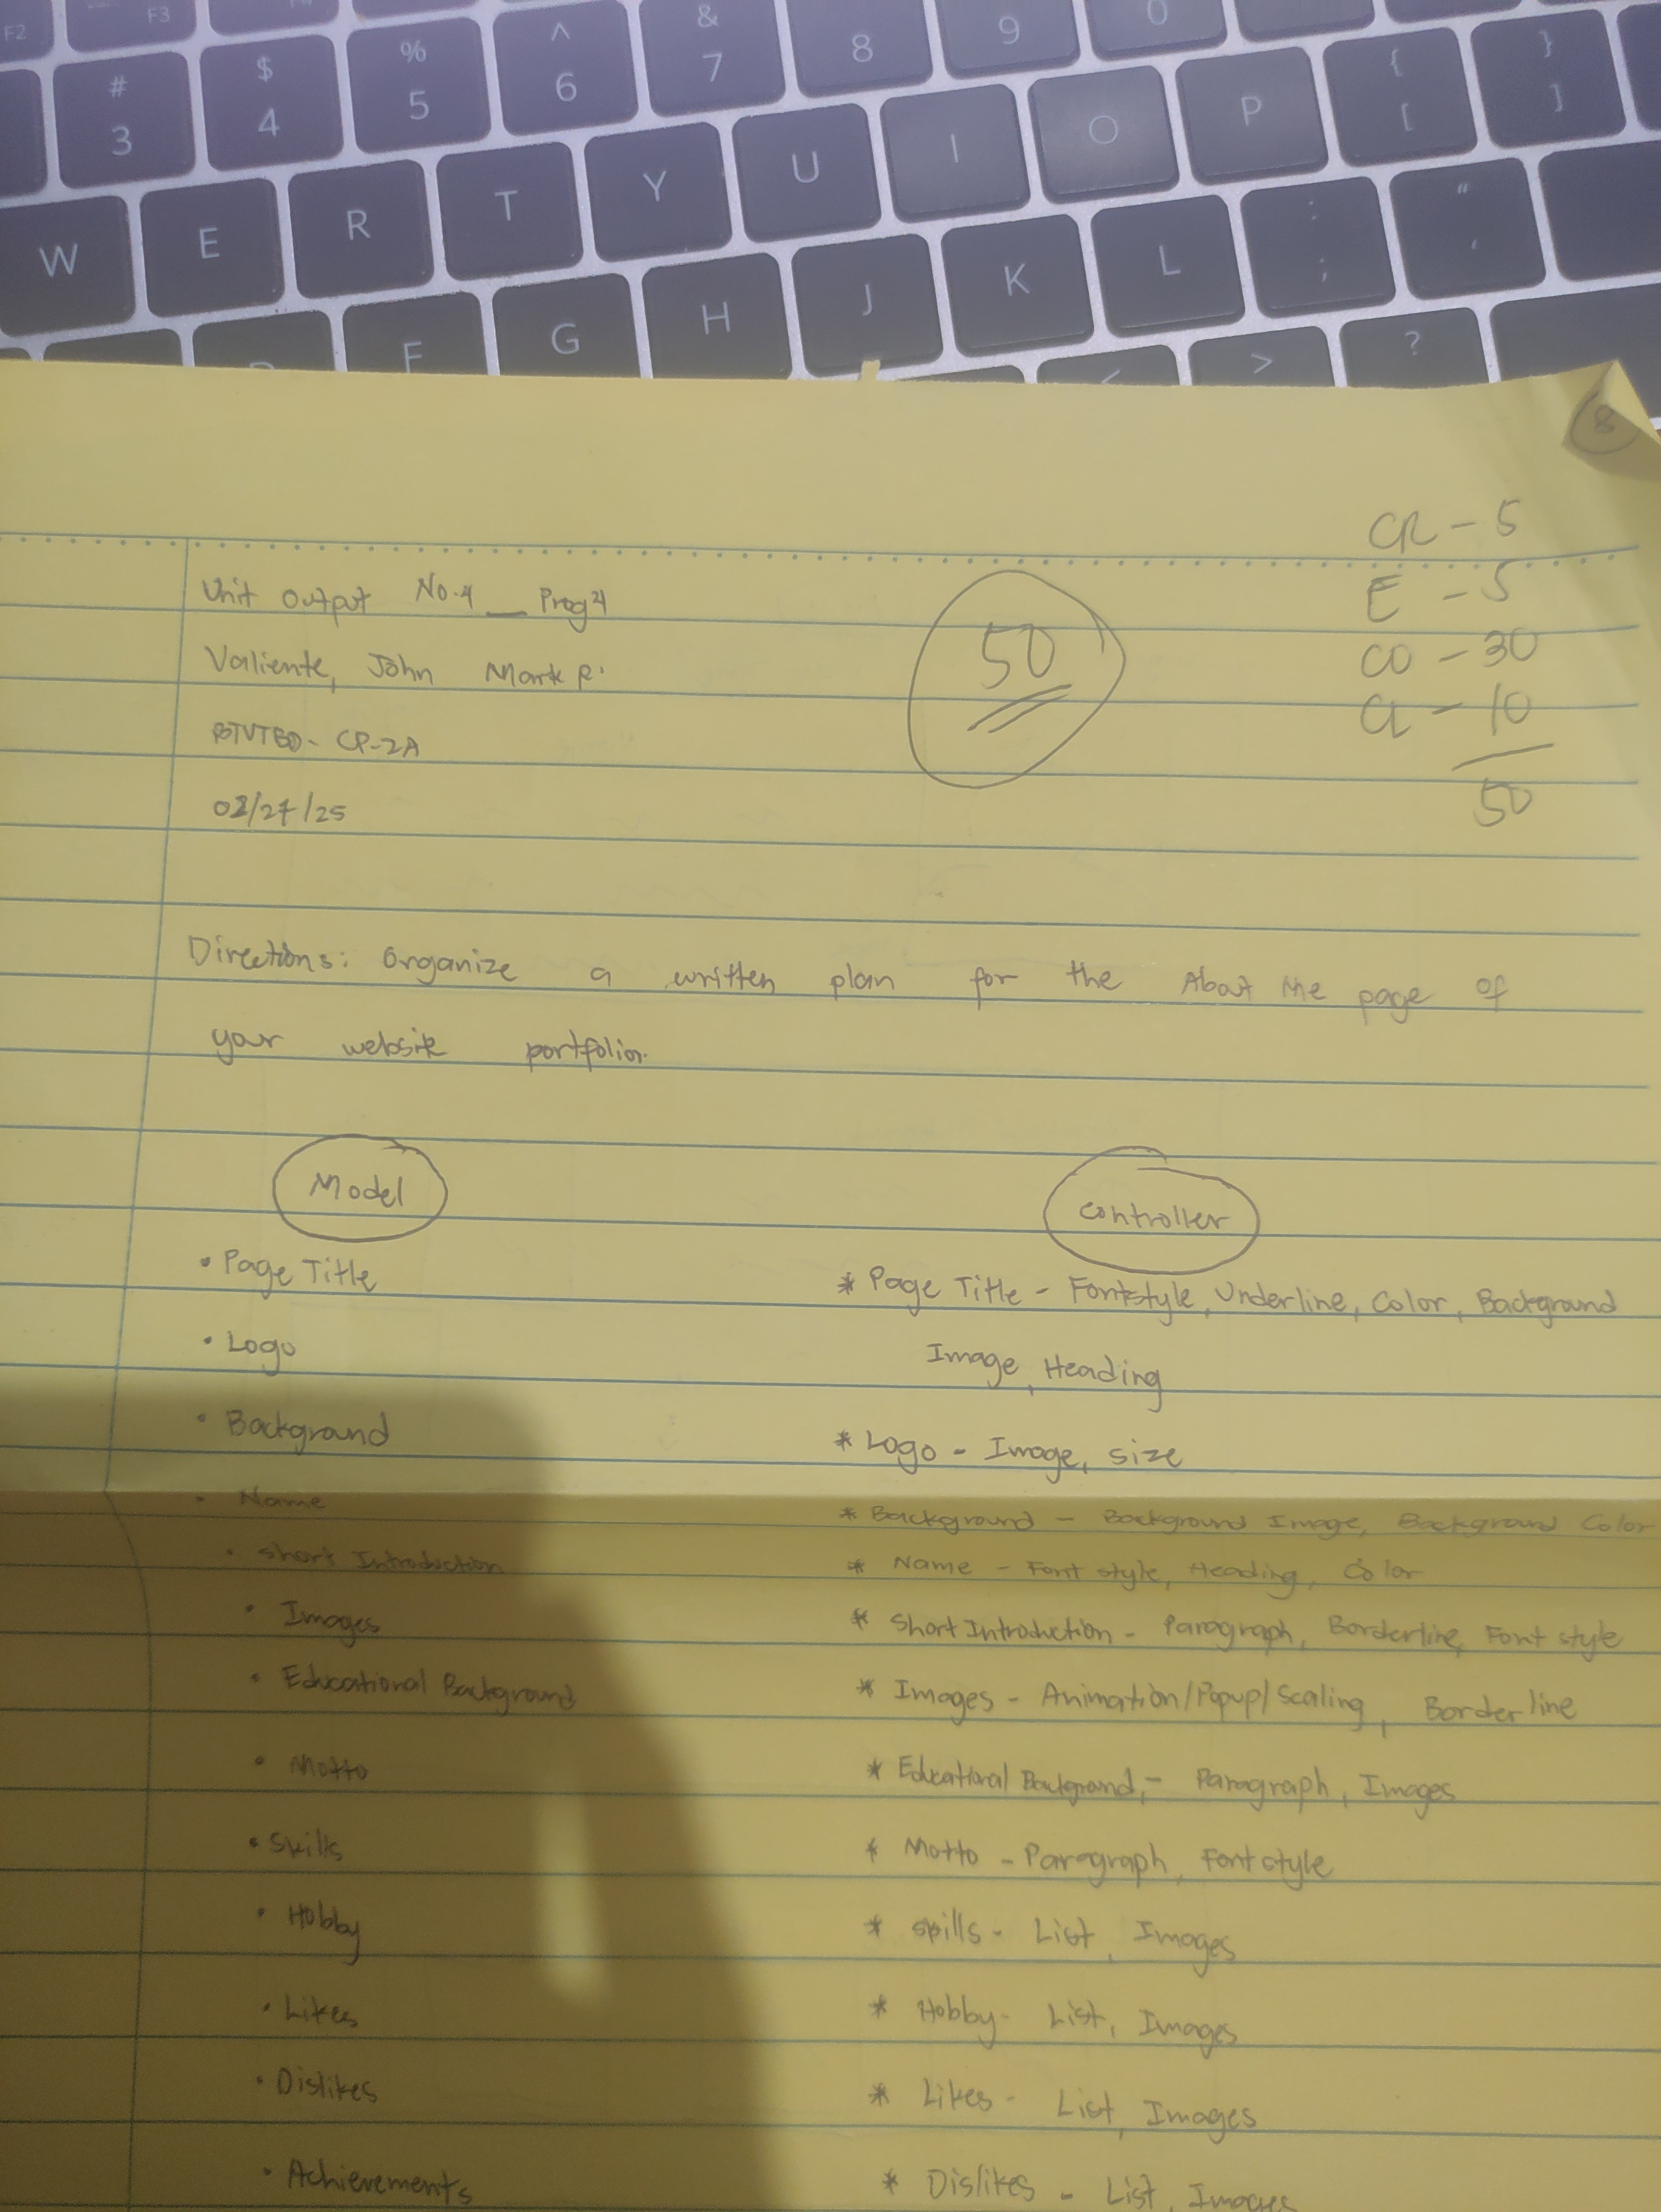 F2 F3
# $ % ^ &
3 4 5 6 7 8 9 0
W E R T Y U I O P { [ } ]
F G H J K L : ; " '
< > ?
8
CR - 5
E - 5
CO - 30
CL - 10
50
50
Unit Output No.4 _ Prog4
Valiente, John Mark R.
CP-2A
/27/25
Directions: Organize a written plan for the About Me page of
your website portfolio.
Model
• Page Title
• Logo
• Background
• Name
• Short Introduction
• Images
• Educational Background
• Motto
• Skills
• Hobby
• Likes
• Dislikes
• Achievements
Controller
* Page Title - Fontstyle, Underline, Color, Background
Image, Heading
* Logo - Image, size
* Background - Background Image, Background Color
* Name - Font style, Heading, Color
* Short Introduction - Paragraph, Borderline, Font style
* Images - Animation/Popup/Scaling, Borderline
* Educational Background, - Paragraph, Images
* Motto - Paragraph, Font style
* Skills - List, Images
* Hobby - List, Images
* Likes - List, Images
* Dislikes - List, Images